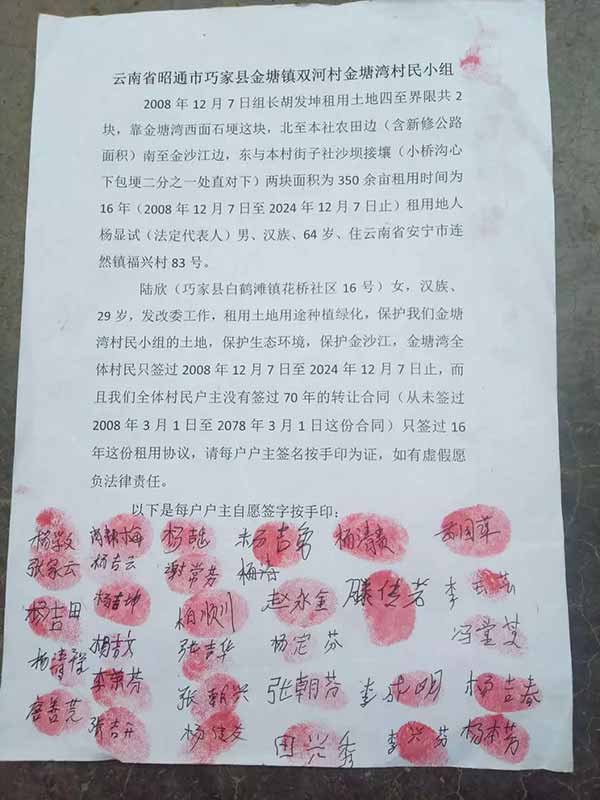 云南省昭通市巧家县金塘镇双河村金塘湾村民小组
2008 年 12 月 7 日组长胡发坤租用土地四至界限共 2
块，靠金塘湾西面石埂这块，北至本社农田边（含新修公路
面积）南至金沙江边，东与本村街子社沙坝接壤（小桥沟心
下包埂二分之一处直对下）两块面积为 350 余亩租用时间为
16 年（2008 年 12 月 7 日至 2024 年 12 月 7 日止）租用地人
杨显试（法定代表人）男、汉族、64 岁、住云南省安宁市连
然镇福兴村 83 号。
陆欣（巧家县白鹤滩镇花桥社区 16 号）女，汉族、
29 岁，发改委工作，租用土地用途种植绿化，保护我们金塘
湾村民小组的土地，保护生态环境，保护金沙江，金塘湾全
体村民只签过 2008 年 12 月 7 日至 2024 年 12 月 7 日止，而
且我们全体村民户主没有签过 70 年的转让合同（从未签过
2008 年 3 月 1 日至 2078 年 3 月 1 日这份合同）只签过 16
年这份租用协议，请每户户主签名按手印为证，如有虚假愿
负法律责任。
以下是每户户主自愿签字按手印：
杨吉勇 杨清贵
张家云 杨吉云 谢学芬 杨海
杨吉田 杨吉坤 柏顺川 赵永金 滕传芳
杨清程 杨吉文 张吉华 杨定芬 冯堂芝
李荣芬 张朝兴 张朝芬 李成明 杨吉春
唐善荒 张吉开 杨健友 田兴秀 李兴芬 杨本芳